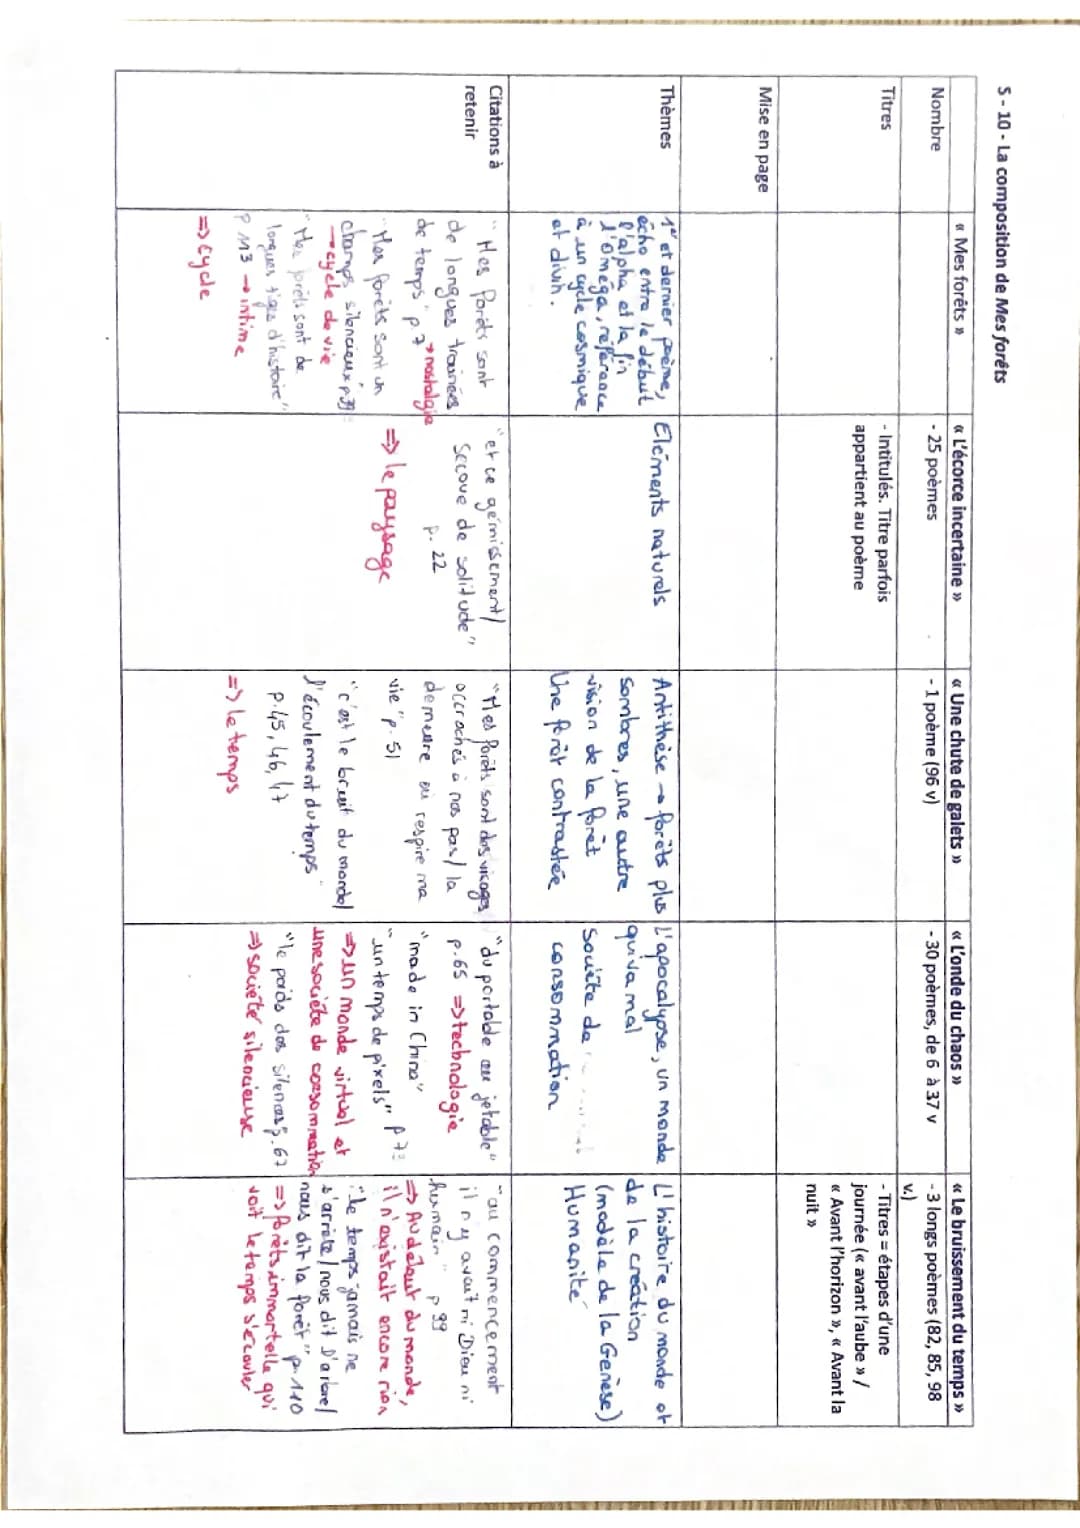 S - 10 - La composition de Mes forêts
« Mes forêts »
« L'écorce incertaine »
« Une chute de galets »
« L'onde du chaos »
« Le bruissement du temps »
Nombre
- 25 poèmes
- 1 poème (96 v)
- 30 poèmes, de 6 à 37 v
- 3 longs poèmes (82, 85, 98
v.)
Titres
- Intitulés. Titre parfois
appartient au poème
- Titres = étapes d'une
journée (« avant l'aube » /
« Avant l'horizon », « Avant la
nuit »
Mise en page
Thèmes
1er et dernier poème,
écho entre le début
l'alpha et la fin
l'oméga, référence
à un cycle cosmique
et divin.
Eléments naturels
Antithèse → forêts plus
sombres, une autre
vision de la forêt
Une forêt contrastée
L'apocalypse, un monde
qui va mal
Société de
consommation
L'histoire du monde et
de la création
(modèle de la Genèse)
Humanité
Citations à
retenir
"Mes Forêts sont
de longues trainées
de temps" p.7 → nostalgie
"Mes forêts sont un
champs silencieux" p.39
→ cycle de vie
"Mes forêts sont de
longues tiges d'histoire"
p 113 → intime
=> cycle
"et ce gémissement/
secoue de solitude"
p. 22
=> le paysage
"Mes forêts sont des visages
accrochés à nos pas/ la
demeure où respire ma
vie" p. 51
"c'est le bruit du monde/
l'écoulement du temps"
p.45, 46, 47
=> le temps
"du portable au jetable"
p.65 => technologie
"made in China"
"un temps de pixels" p 7
=> un monde virtuel et
une société de consommation
"le poids des silences p.67
=> société silencieuse
"au commencement
il n'y avait ni Dieu ni
humain" p 99
=> Au début du monde,
il n'existait encore rien
"le temps jamais ne
s'arrête / nous dit l'arbre /
nous dit la forêt" p. 110
=> Forêts immortelle qui
voit le temps s'écouler